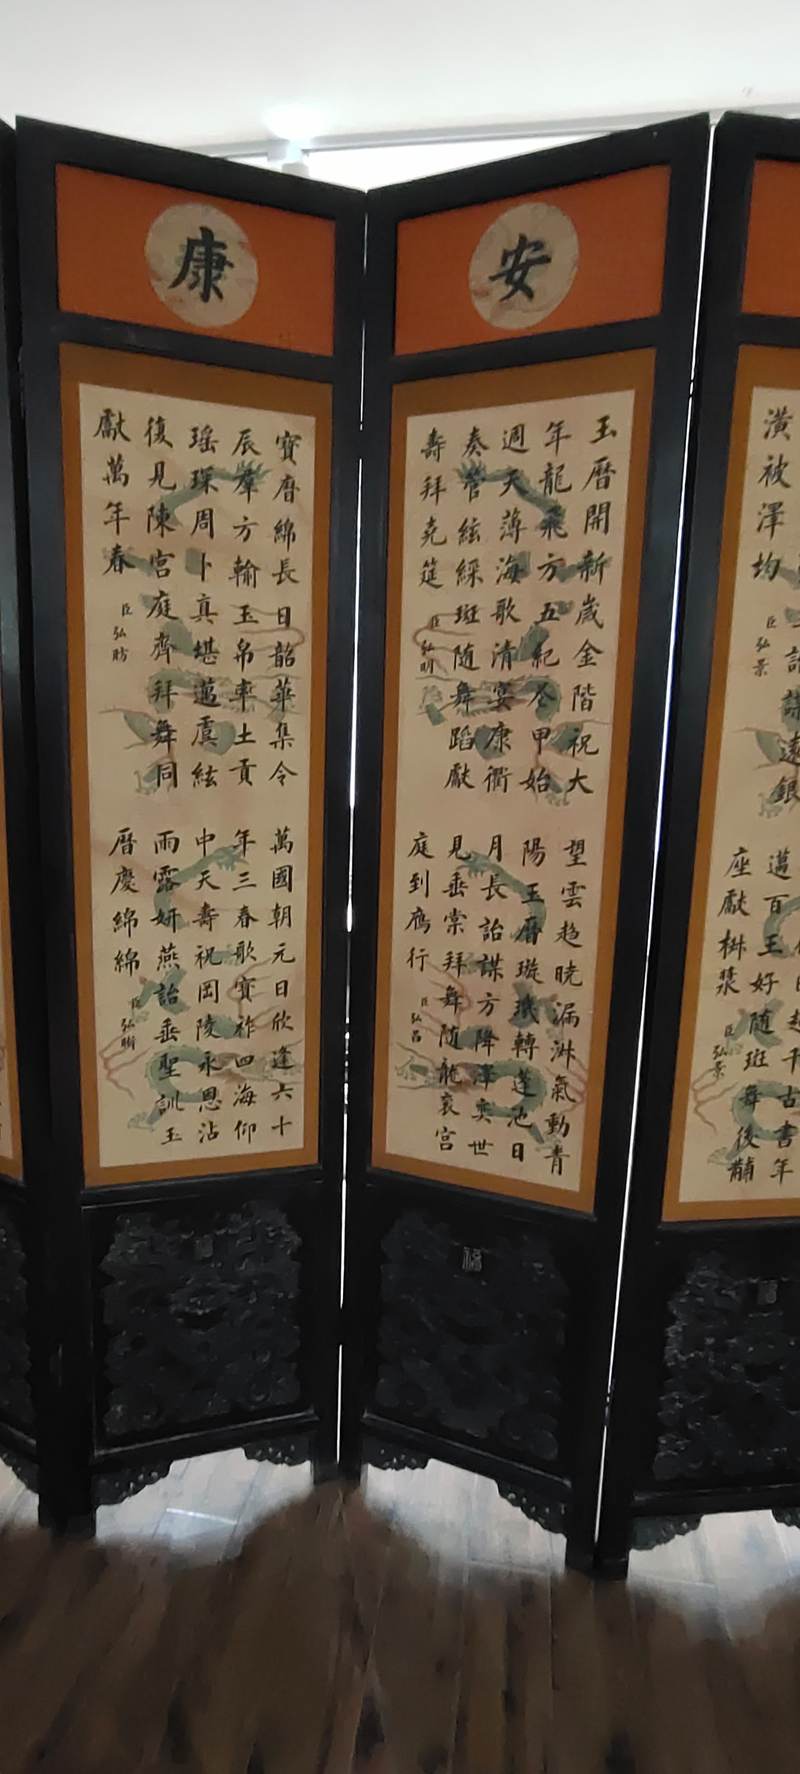 潢被澤均
臣弘景
邁百王好随班舞後黼
座獻椒漿
臣弘景
安
玉曆開新歲金階祝大
年龍飛方五紀令甲始
週天薄海歌清宴康衢
奏管絃綵斑随舞蹈獻
壽拜堯筵
臣弘
望雲趋晓漏淋氣動青
陽玉曆璇璣轉蓬池日
月長詒謀方降澤奕世
見垂棠拜舞随龍衮宮
庭到鴈行
臣弘昌
康
寶曆綿長日韶華集令
辰羣方輸玉帛率土貢
瑶琛周卜真堪邁虞絃
復見陳宮庭齊拜舞同
獻萬年春
臣弘昉
萬國朝元日欣逢六十
年三春歌寶祚四海仰
中天壽祝岡陵永恩沾
雨露妍燕詒垂聖訓玉
曆慶綿綿
臣弘